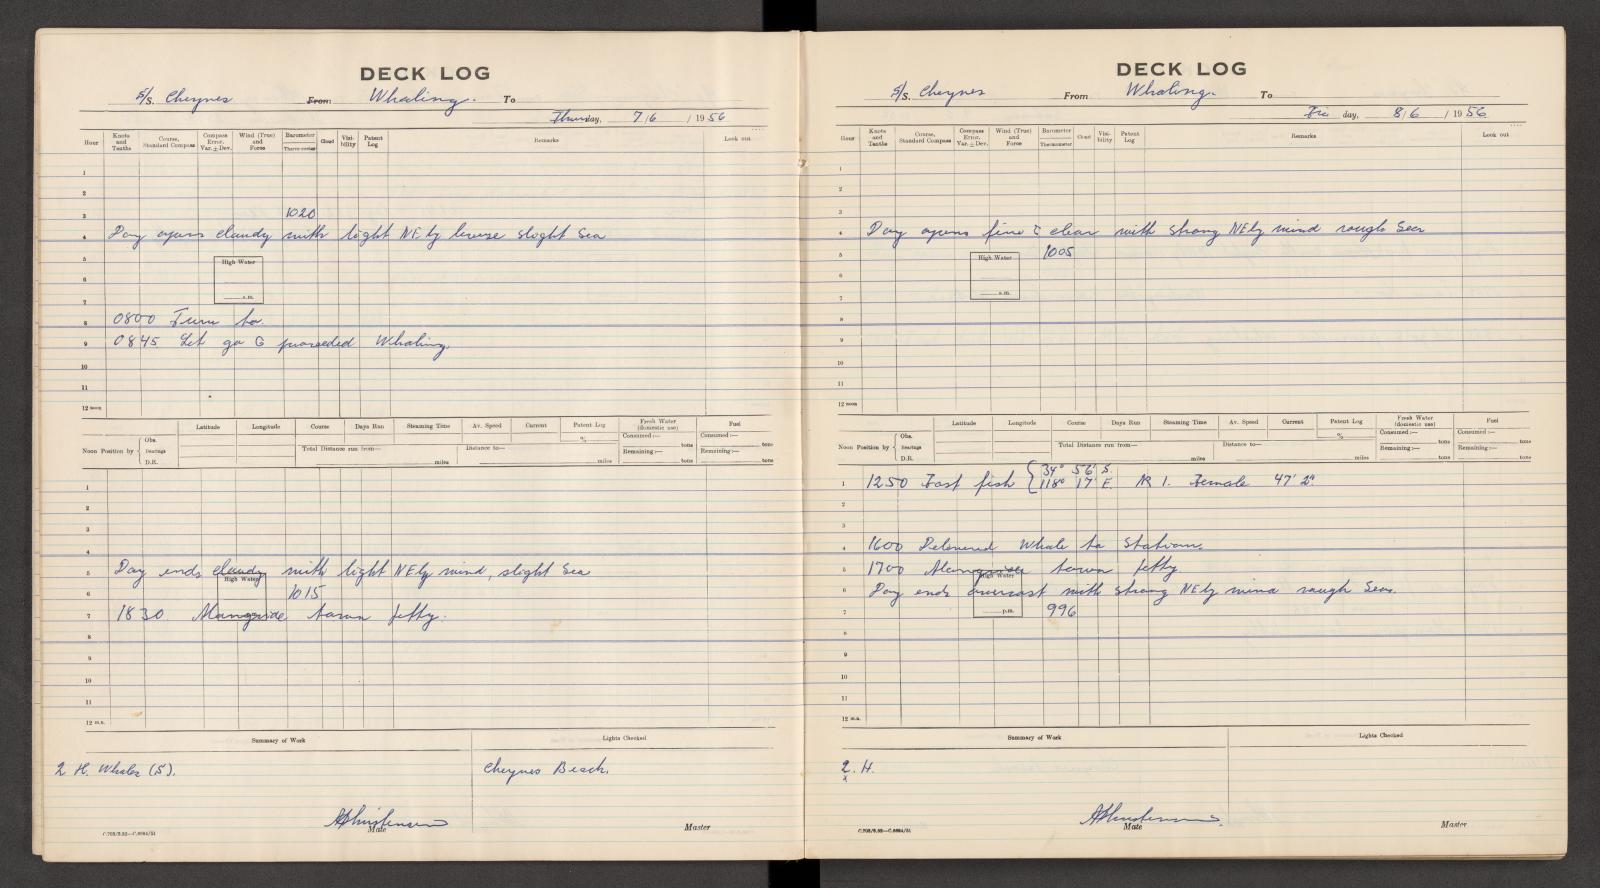 DECK LOG
S/S. Cheynes From Whaling. To
Thursday, 7/6 / 1956
Hour Knots and Tenths Course, Standard Compass Compass Error. Var. ± Dev. Wind (True) and Force Barometer Thermometer Cloud Visibility Patent Log Remarks Look out
1
2
3 1020
4 Day opens cloudy with light NEly breeze slight Sea
5 High Water
6
7 a.m.
8 0800 Turn to.
9 0845 Let go & proceeded Whaling.
10
11
12 noon
Latitude Longitude Course Days Run Steaming Time Av. Speed Current Patent Log Fresh Water (domestic use) Fuel
Noon Position by Obs. Bearings D.R. Total Distance run from— miles Distance to— miles % Consumed:— tons Remaining:— tons Consumed:— tons Remaining:— tons
1
2
3
4
5 Day ends cloudy with light NEly wind, slight Sea
High Water
6 1015
7 1830 Alongside town jetty.
8
9
10
11
12 m.n.
Summary of Work Lights Checked
2 H. Whales (5). Cheynes Beach.
AChristensen
Mate Master
C.702/9.52—C.6964/51
DECK LOG
S/S. Cheynes From Whaling. To
Fri day, 8/6 / 1956
Hour Knots and Tenths Course, Standard Compass Compass Error. Var. ± Dev. Wind (True) and Force Barometer Thermometer Cloud Visibility Patent Log Remarks Look out
1
2
3
4 Day opens fine & clear with strong NEly wind rough Sea
5 High Water 1005
6
7 a.m.
8
9
10
11
12 noon
Latitude Longitude Course Days Run Steaming Time Av. Speed Current Patent Log Fresh Water (domestic use) Fuel
Noon Position by Obs. Bearings D.R. Total Distance run from— miles Distance to— miles % Consumed:— tons Remaining:— tons Consumed:— tons Remaining:— tons
1 1250 Fast fish { 34° 56' S. 118° 17' E. NR 1. Female 47' 2"
2
3
4 1600 Delivered Whale to Station.
5 1700 Alongside town jetty
High Water
6 Day ends overcast with strong NEly wind rough Sea.
7 p.m. 996
8
9
10
11
12 m.n.
Summary of Work Lights Checked
2. H.
x
AChristensen
Mate Master
C.702/9.52—C.6964/51